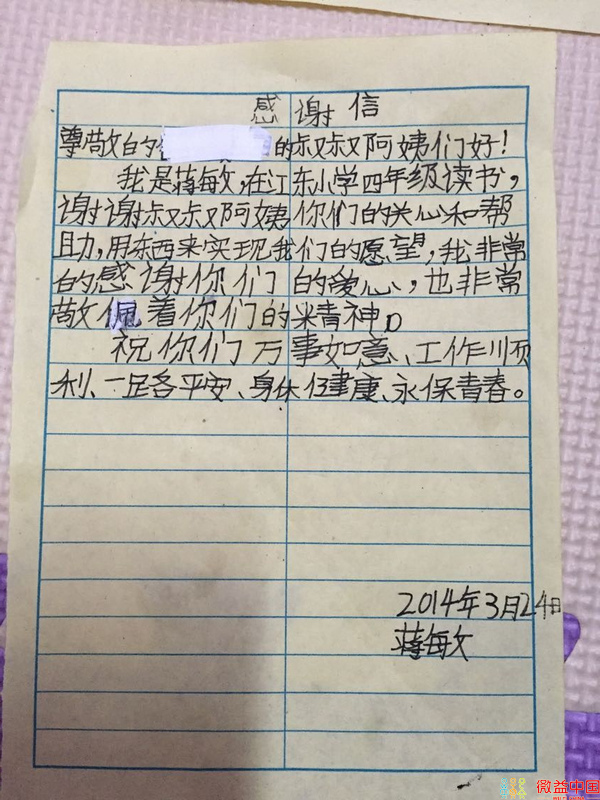 感谢信
尊敬的的叔叔阿姨们好！
我是蒋敏，在江东小学四年级读书，
谢谢叔叔阿姨你们的关心和帮
助，用东西来实现我们的愿望，我非常
的感谢你们的爱心，也非常
敬佩着你们的精神。
祝你们万事如意、工作顺
利、一足各平安、身体健康、永保青春。
2014年3月24日
蒋敏
微益中国